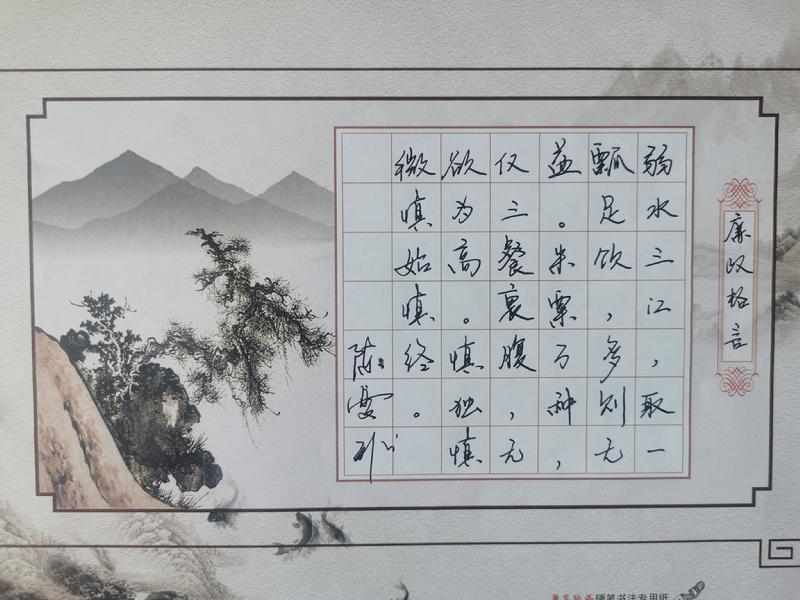 廉政格言
弱水三江，取一
瓢足饮，多则无
益。米粟万种，
仅三餐裹腹，无
欲为高。慎独慎
微慎始慎终。
硬笔书法专用纸